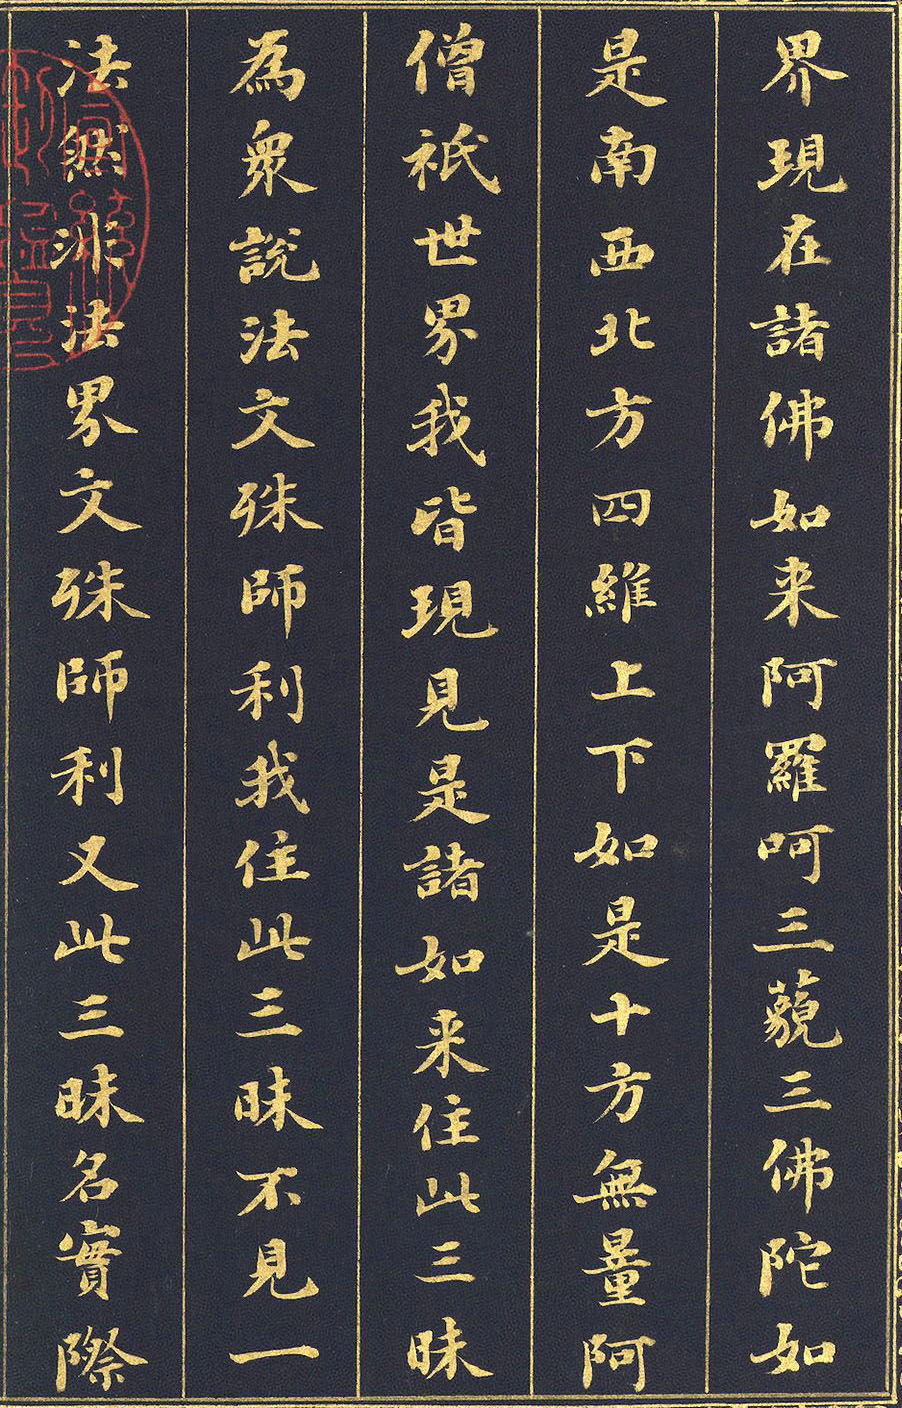 界現在諸佛如来阿羅呵三藐三佛陀如
是南西北方四維上下如是十方無量阿
僧祇世界我皆現見是諸如来住此三昧
為衆說法文殊師利我住此三昧不見一
法然非法界文殊師利又此三昧名實際